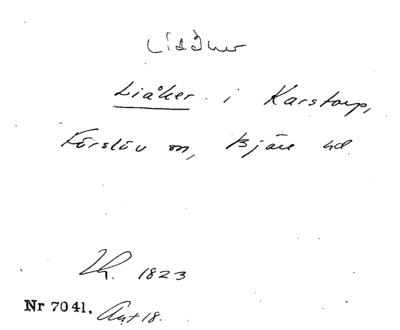 Liåker
Liåker i Karstorp,
Förslöv sn, Bjäre hd.
Lh. 1823
Nr 7041. Akt 18.